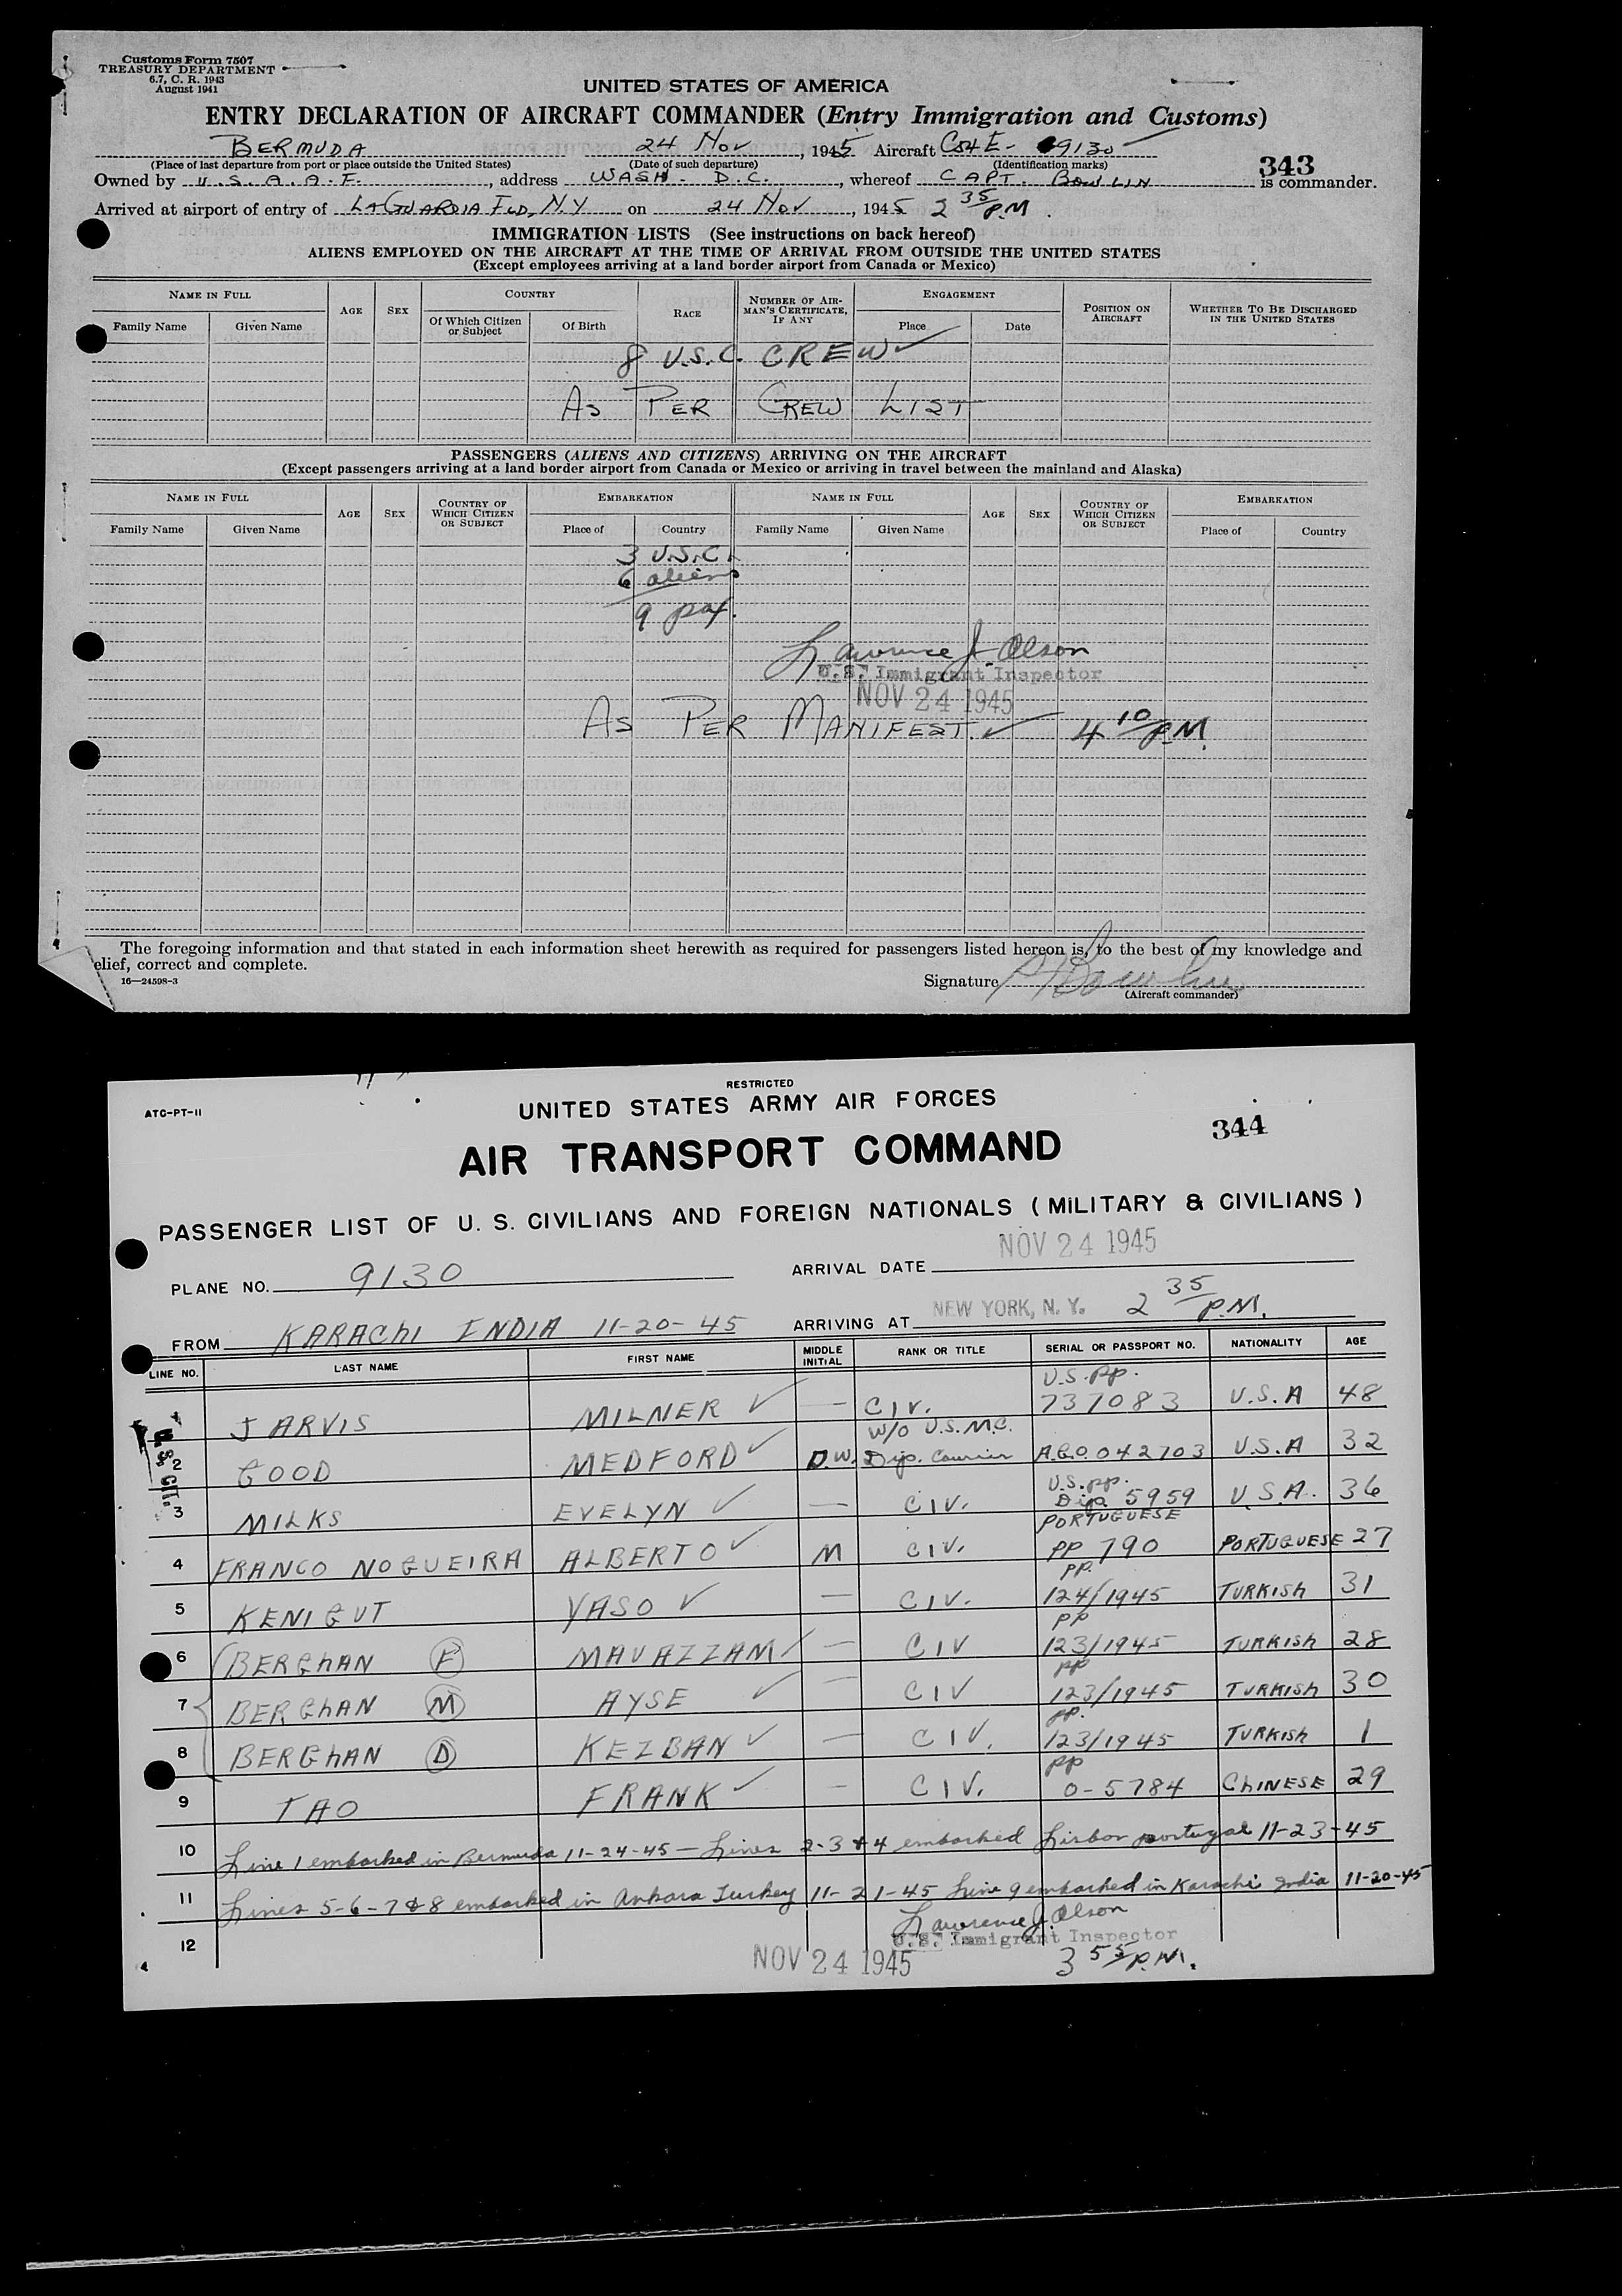 Customs Form 7507
TREASURY DEPARTMENT
6.7, C. R. 1943
August 1941
UNITED STATES OF AMERICA
ENTRY DECLARATION OF AIRCRAFT COMMANDER (Entry Immigration and Customs)
BERMUDA 24 Nov, 1945 Aircraft C54E- 9130
(Place of last departure from port or place outside the United States) (Date of such departure) (Identification marks)
343
Owned by U.S.A.A.F., address WASH. D.C., whereof CAPT. BOWLIN is commander.
Arrived at airport of entry of LAGUARDIA FLD, N.Y on 24 Nov, 1945 2 35 P.M.
IMMIGRATION LISTS (See instructions on back hereof)
ALIENS EMPLOYED ON THE AIRCRAFT AT THE TIME OF ARRIVAL FROM OUTSIDE THE UNITED STATES
(Except employees arriving at a land border airport from Canada or Mexico)
NAME IN FULL AGE SEX COUNTRY RACE NUMBER OF AIRMAN'S CERTIFICATE, IF ANY ENGAGEMENT POSITION ON AIRCRAFT WHETHER TO BE DISCHARGED IN THE UNITED STATES
Family Name Given Name Of Which Citizen or Subject Of Birth Place Date
8 U.S.C. CREW ✓
AS PER CREW LIST
PASSENGERS (ALIENS AND CITIZENS) ARRIVING ON THE AIRCRAFT
(Except passengers arriving at a land border airport from Canada or Mexico or arriving in travel between the mainland and Alaska)
NAME IN FULL AGE SEX COUNTRY OF WHICH CITIZEN OR SUBJECT EMBARKATION NAME IN FULL AGE SEX COUNTRY OF WHICH CITIZEN OR SUBJECT EMBARKATION
Family Name Given Name Place of Country Family Name Given Name Place of Country
3 U.S.C.
6 aliens
9 pax.
Lawrence J. Olson
U.S. Immigrant Inspector
NOV 24 1945
AS PER MANIFEST ✓ 4 10 P.M.
The foregoing information and that stated in each information sheet herewith as required for passengers listed hereon is, to the best of my knowledge and
elief, correct and complete.
16—24598-3
Signature
(Aircraft commander)
RESTRICTED
ATC-PT-11
UNITED STATES ARMY AIR FORCES
344
AIR TRANSPORT COMMAND
PASSENGER LIST OF U. S. CIVILIANS AND FOREIGN NATIONALS ( MILITARY & CIVILIANS )
PLANE NO. 9130 ARRIVAL DATE NOV 24 1945
FROM KARACHI INDIA 11-20-45 ARRIVING AT NEW YORK, N. Y. 2 35 P.M.
LINE NO. LAST NAME FIRST NAME MIDDLE INITIAL RANK OR TITLE SERIAL OR PASSPORT NO. NATIONALITY AGE
JARVIS MILNER ✓ — CIV. U.S. PP. 737083 U.S.A 48
U.S. CIT.
2 GOOD MEDFORD ✓ D.W. W/O U.S.M.C. Dip. Courier A.G.O. 042703 U.S.A 32
3 MILKS EVELYN ✓ — CIV. U.S. PP. Dip 5959 U.S.A. 36
4 FRANCO NOGUEIRA ALBERTO ✓ M CIV. PORTUGUESE PP 790 PORTUGUESE 27
5 KENIGUT YASO ✓ — CIV. PP. 124/1945 TURKISH 31
6 BERGHAN F MAVAZZAM ✓ — CIV PP 123/1945 TURKISH 28
7 BERGHAN M AYSE ✓ — CIV PP 123/1945 TURKISH 30
8 BERGHAN D KEZBAN ✓ — CIV. PP. 123/1945 TURKISH 1
9 TAO FRANK ✓ — CIV. PP 0-5784 CHINESE 29
10 Line 1 embarked in Bermuda 11-24-45 — Lines 2-3 & 4 embarked Lisbon portugal 11-23-45
11 Lines 5-6-7 & 8 embarked in Ankara Turkey 11-21-45 Line 9 embarked in Karachi India 11-20-45
12
Lawrence J. Olson
U.S. Immigrant Inspector
NOV 24 1945 3 55 P.M.